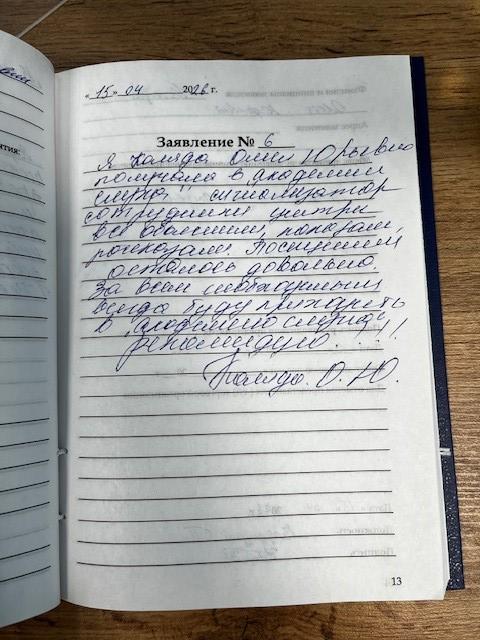 «15» 04 2026 г.
Заявление № 6
Я Коляда Олеся Юрьевна
получала в "Академии
слуха" сигнализатор
сотрудники центра
все объяснили, показали,
рассказали. Посещением
осталась довольна.
За всем необходимым
всегда буду приходить
в "Академию слуха"
рекомендую. !!!
Коляда. О. Ю.
13